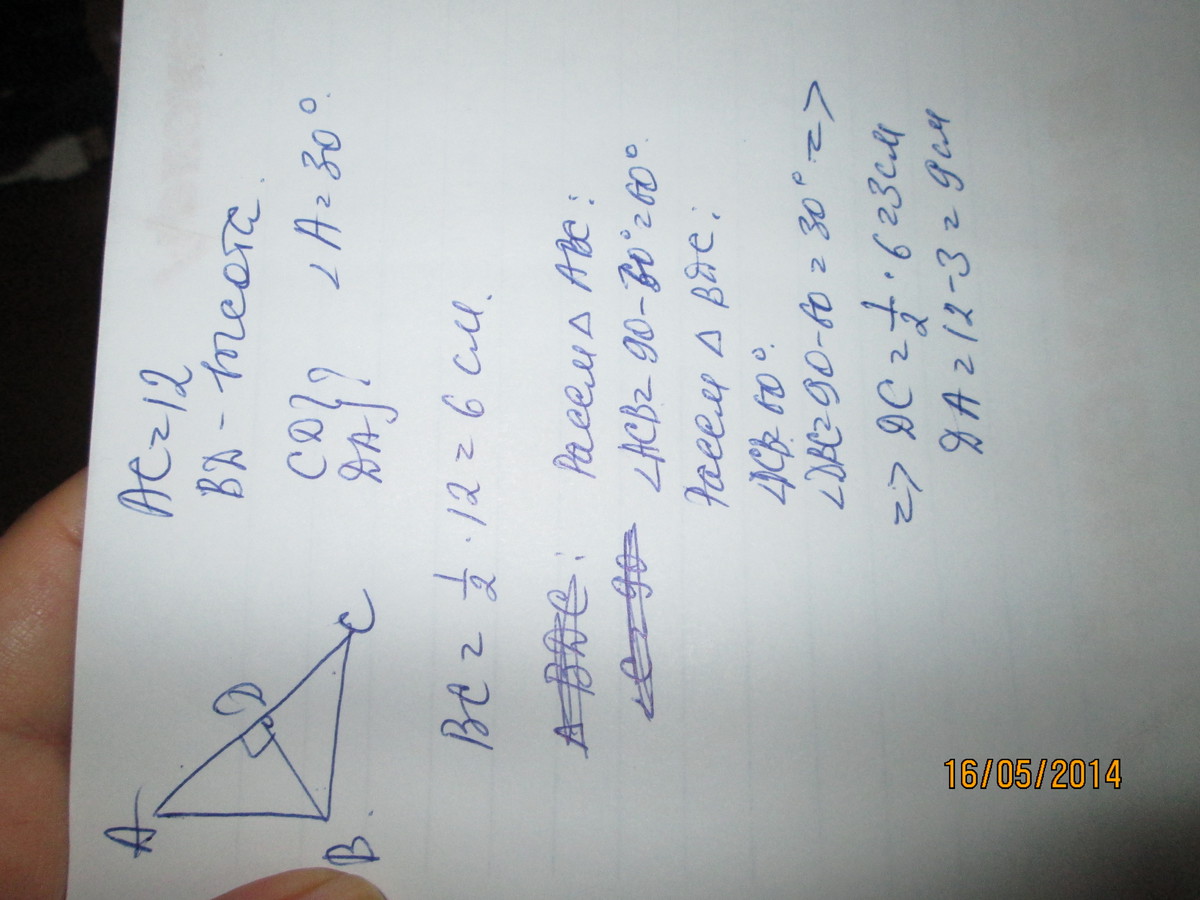 A
D
B.
C
AC=12
BD - высота.
CD
DA } ?
∠A=30°.
BC = 1/2 · 12 = 6 см.
Δ BDC :
∠C = 90
Рассм Δ ABC :
∠ACB = 90-30° = 60°.
Рассм Δ BDC :
∠DCB = 60°.
∠DBC = 90-60 = 30° =>
=> DC = 1/2 · 6 = 3 см
DA = 12-3 = 9 см
16/05/2014